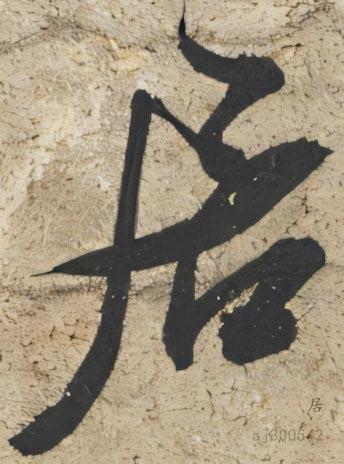 居
居
aj300542